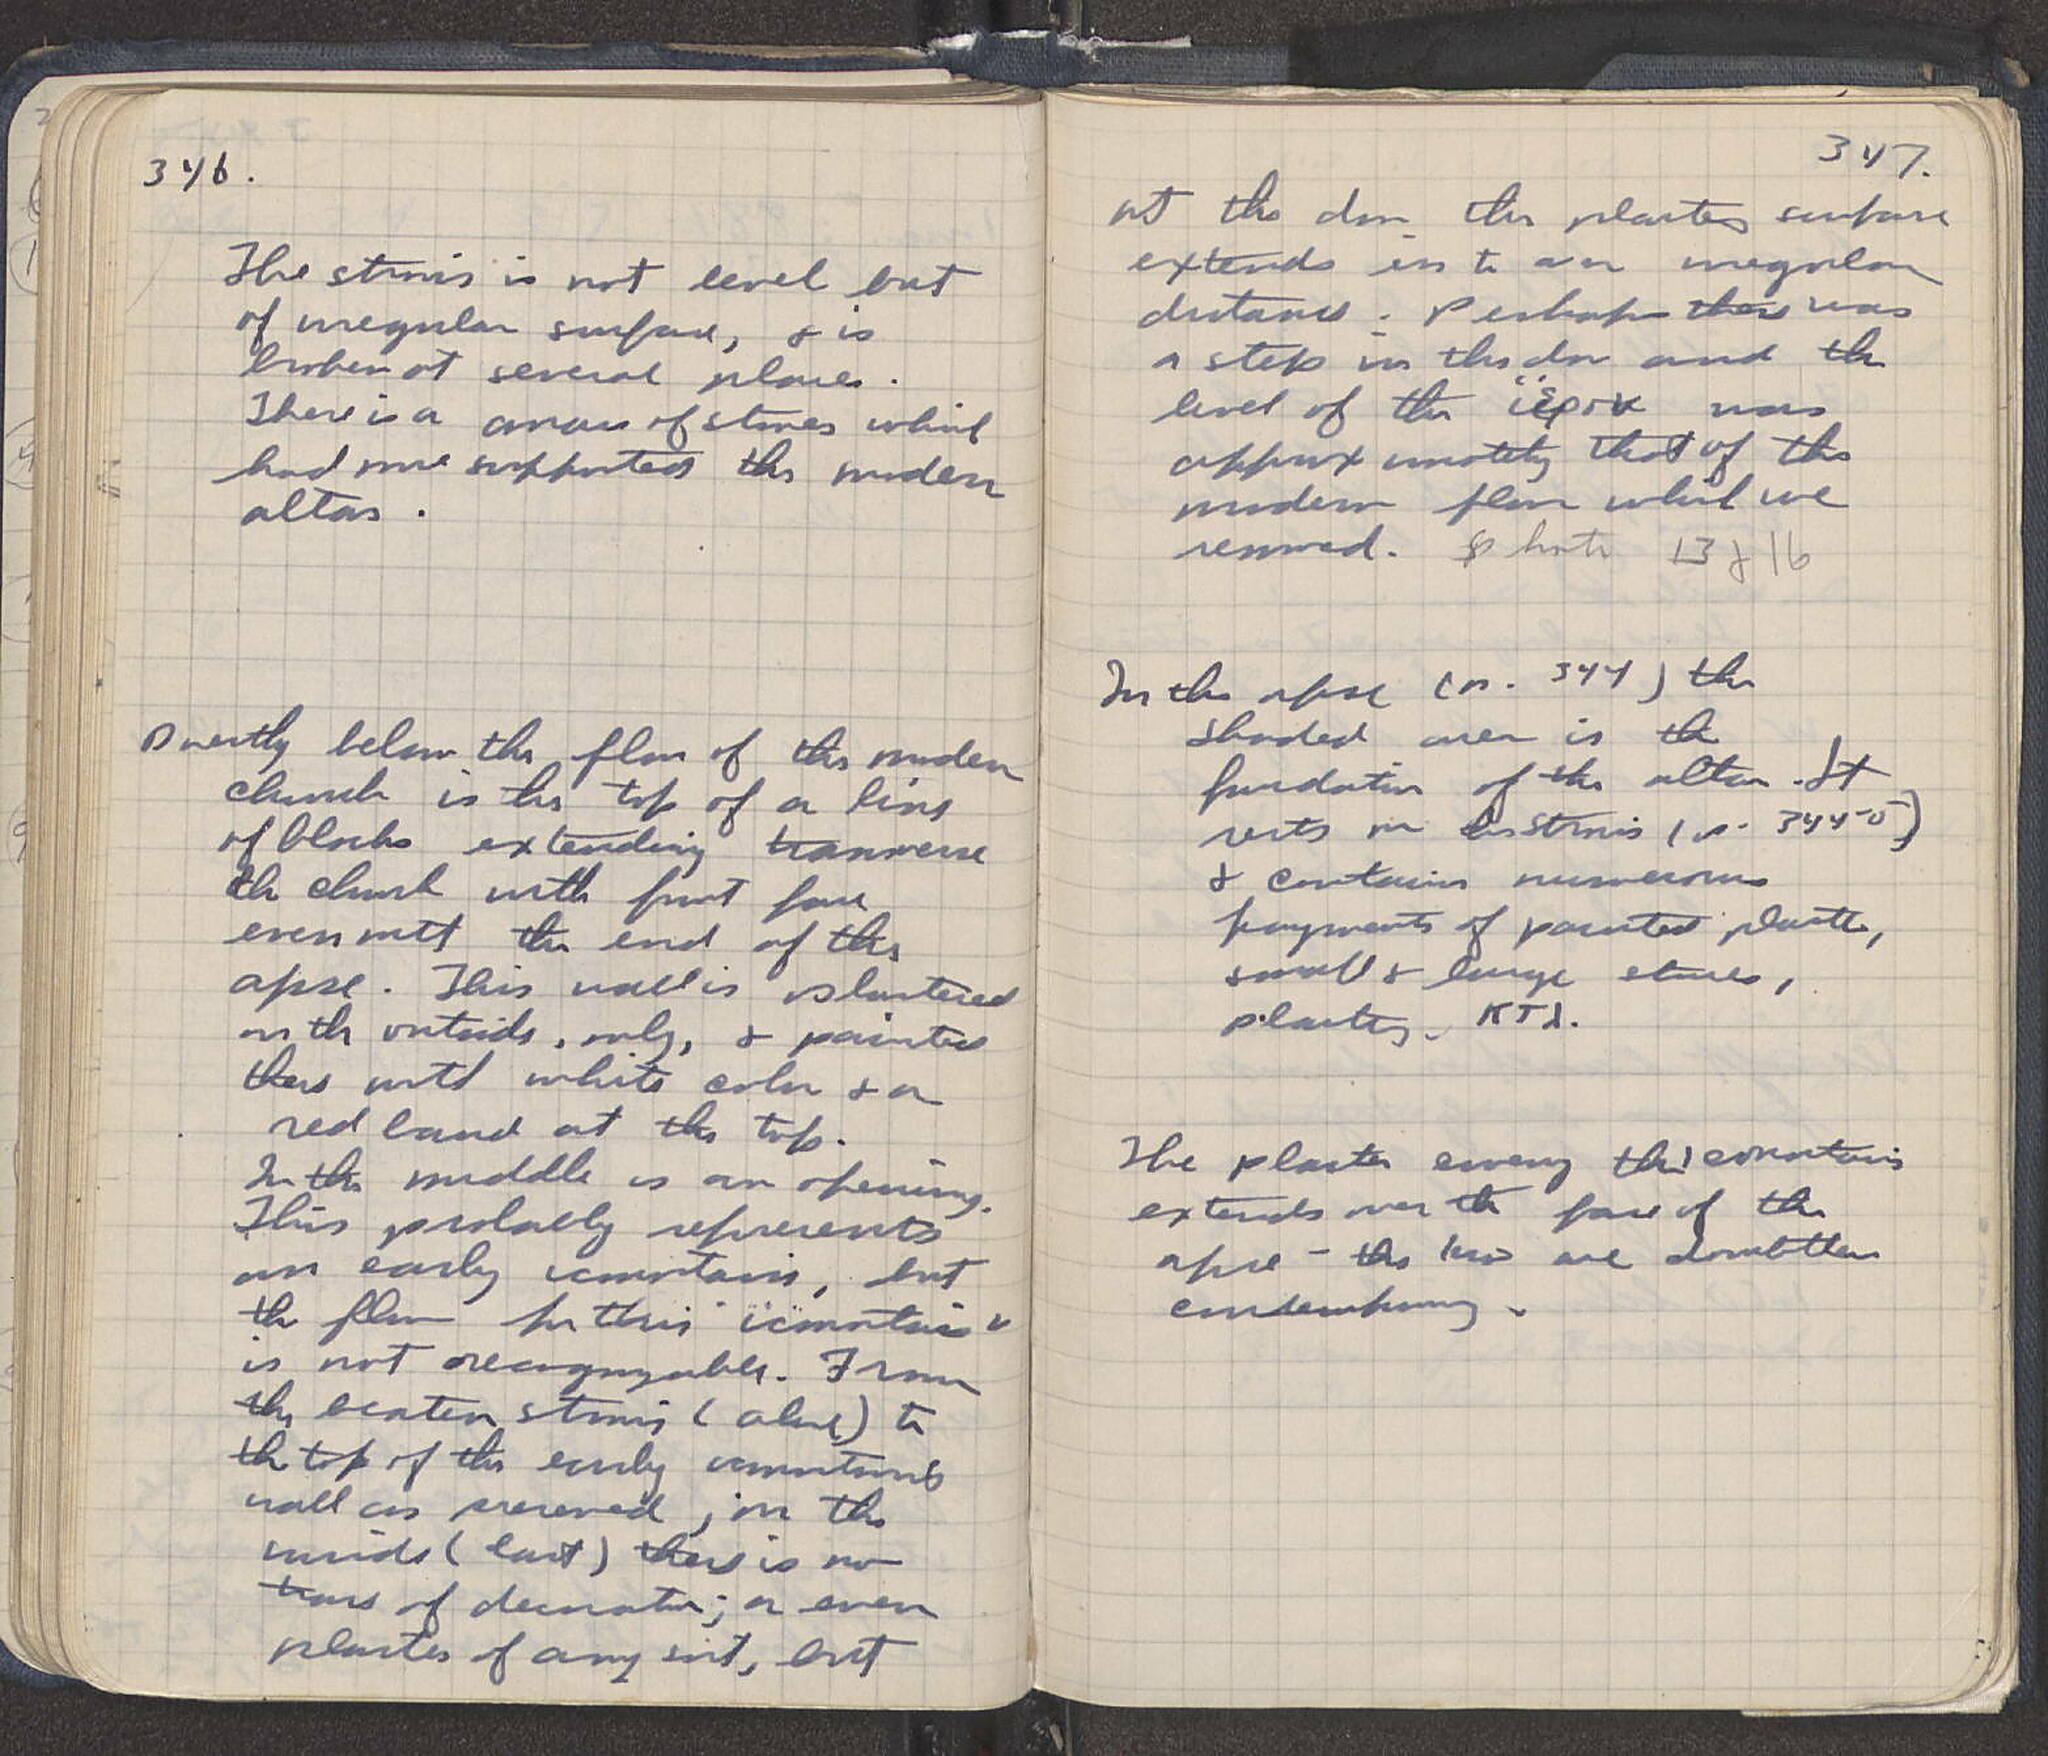 346.
The strosis is not level but
of irregular surface, & is
broken at several places.
There is a mass of stones which
had once supported the modern
altar.
Directly below the floor of the modern
church is the top of a line
of blocks extending transverse
the church with front face
even with the end of the
apse. This wall is plastered
on the outside, only, & painted
there with white color & a
red band at the top.
In the middle is an opening.
This probably represents
an early iconostasis, but
the floor for this iconostasis
is not recognizable. From
the beaten strosis (above) to
the top of the early iconostasis
wall as preserved, on the
inside (east) there is no
trace of decoration, or even
plaster of any sort, but
347.
at the door the plaster surface
extends in to an irregular
distance. Perhaps there was
a step in the door and the
level of the ἱερόν was
approximately that of the
modern floor which we
removed. Photo 13 & 16
In the apse (p. 344) the
shaded area is the
foundation of the altar. It
rests on the strosis (p. 344-5)
& contains numerous
fragments of painted plaster,
small & large stones,
plaster, κτλ.
The plaster covering the iconostasis
extends over the face of the
apse - the two are doubtless
contemporary.